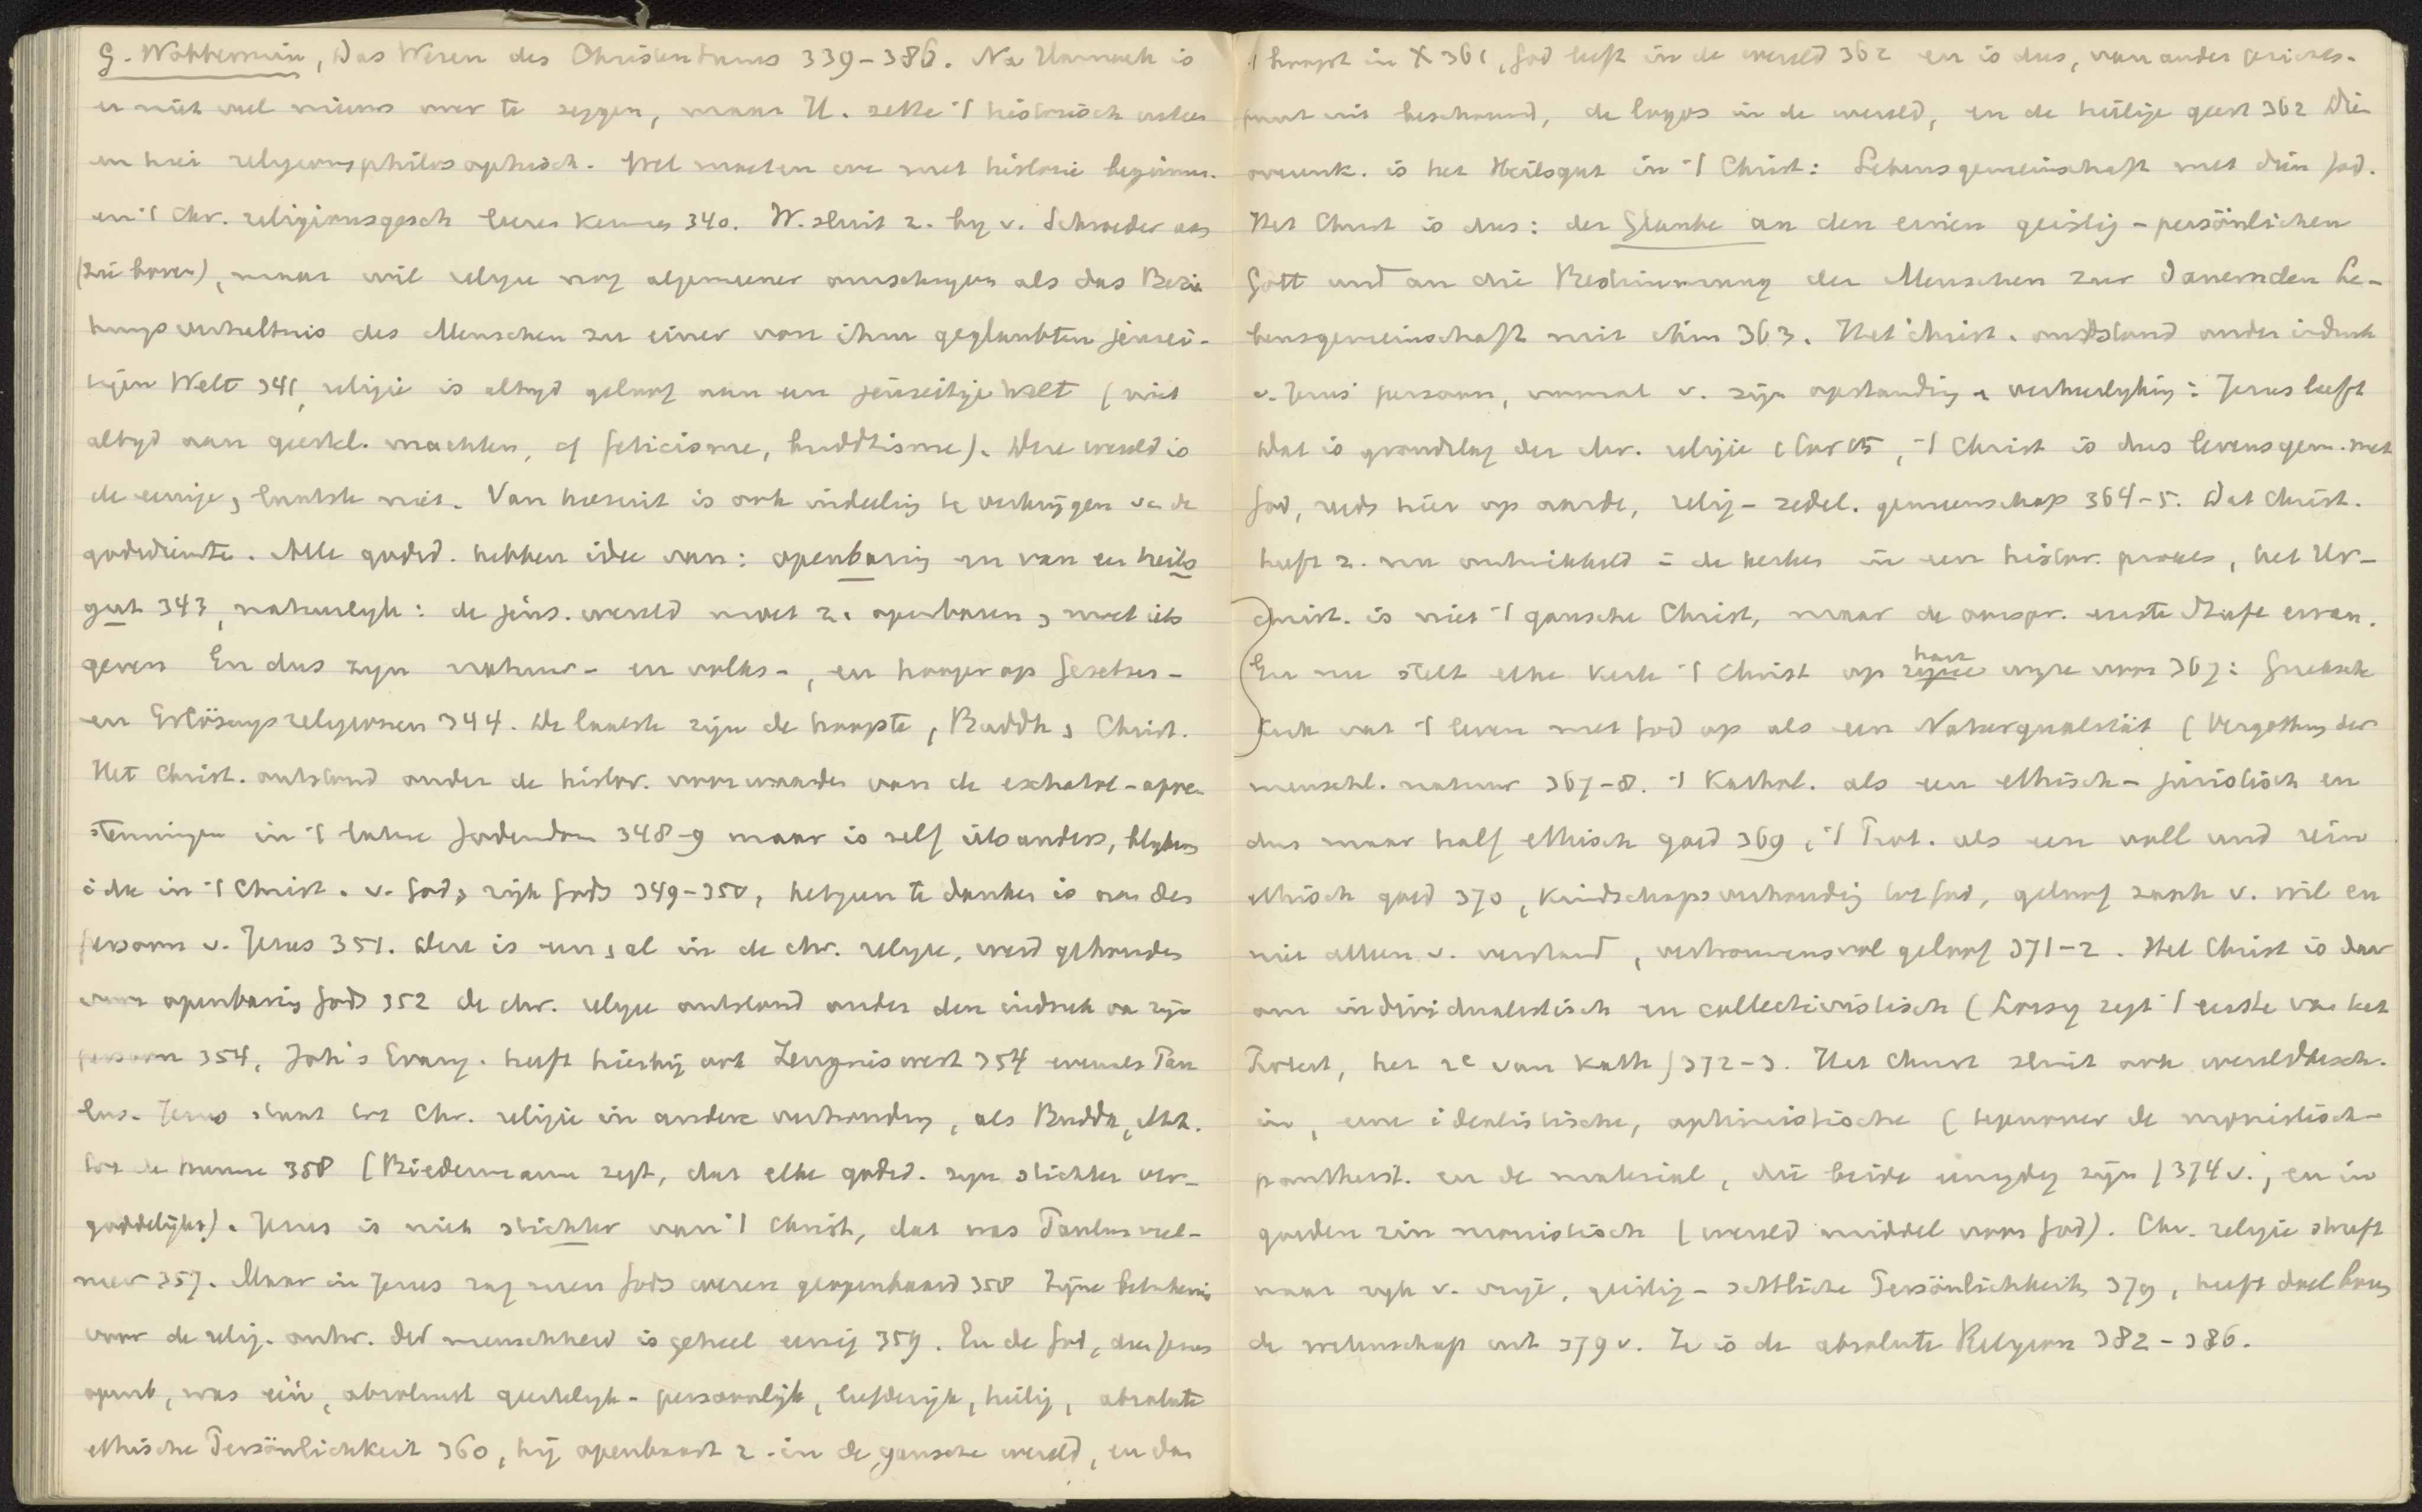 G. Wobbermin, Das Wesen des Christentums 339-386. Na Harnack is
er niet veel nieuws over te zeggen, maar H. zette 't historisch uiteen
en hier religionsphilosophisch. Wel moeten we met historie beginnen.
en 't Chr. religionsgesch leeren kennen 340. W. sluit z. by v. Schroeder aan
(zie boven), maar wil religie nog algemeener omschryven als das Bezie
hungsverhältnis des Menschen zu einer von ihm geglaubten jensei-
tigen Welt 341, religie is altyd geloof aan een jenseitige Welt (niet
altyd aan geestel. machten, cf feticisme, buddhisme). Deze wereld is
de eenige, laatste niet. Van hieruit is ook indeeling te verkrijgen v. de
godsdiensten. Alle godsd. hebben idee van: openbaring en van een heils
gut 343, natuurlyk: de jens. wereld moet z. openbaren, moet iets
geven En dus zyn natuur- en volks-, en hooger op Gesetzes-
en Erlösungsreligionen 344. De laatste zijn de hoogste, Buddh, Christ.
Het Christ. ontstond onder de histor. voorwaarden van de eschatol-apoc.
stemmingen in 't latere Jodendom 348-9 maar is zelf iets anders, blykens
idee in 't Christ. v. God, rijk Gods 349-350, hetgeen te danken is aan den
persoon v. Jezus 351. Deze is en al in de chr. religie, werd gehouden
voor openbaring Gods 352 de chr. religie ontstond onder den indruk van zijn
persoon 354, Joh's Evang. heeft hierbij ook Zeugniswert 354 evenals Pau
lus. Jezus staat tot Chr. religie in andere verhouding, als Buddh, Moh.
tot de hunne 358 (Biedermann zegt, dat elke godsd. zyn stichter ver-
goddelijkt). Jezus is niet stichter van 't Christ, dat was Paulus veel-
meer 357. Maar in Jezus zag men Gods wezen geopenbaard 358 Zijne beteekenis
voor de relig. ontw. der menschheid is geheel eenig 359. En de God, dien Jezus
openb, was één, absoluut geestelyk-persoonlijk, liefderijk, heilig, absolute
ethische Persönlichkeit 360, hij openbaart z. in de gansche wereld, en dan
't hoogst in X 361, God leeft in de wereld 362 en is dus, van ander gezichts-
punt uit beschouwd, de logos in de wereld, en de heilige geest 362 Die
overeenk. is het Heilsgut in 't Christ: Lebensgemeinschaft met dien God.
Het Christ is dus: der Glaube an den einen geistig-persönlichen
Gott und an die Bestimmung der Menschen zur dauernden Le-
bensgemeinschaft mit ihm 363. Het Christ. ontstond onder indruk
v. Jezus' persoon, vooral v. zijn opstanding en verheerlyking: Jezus leeft
dat is grondslag der chr. religie 1 Cor 15, 't Christ is dus levensgem. met
God, reeds hier op aarde, relig-zedel. gemeenschap 364-5. Dat Christ.
heeft z. nu ontwikkeld in de kerken in een histor. proces, het Ur-
christ. is niet 't gansche Christ, maar de oorspr. eerste Stufe ervan.
En nu stelt elke kerk 't Christ op haar wyze voor 367: Grieksche
kerk vat 't leven met God op als een Naturqualität (Vergottung der
menschl. natuur 367-8. 't Kathol. als een ethisch-juristisch en
dus maar half ethisch goed 369, 't Prot. als een voll und rein
ethisch goed 370, kindschapsverhouding tot God, geloof zaak v. wil en
niet alleen v. verstand, vertrouwensvol geloof 371-2. Het Christ is daar
om individualistisch en collectivistisch (Loisy zegt 't eerste van het
Protest, het 2e van Kath) 372-3. Het Christ sluit ook wereldbesch.
in, eene idealistische, optimistische (tegenover de monistisch-
pantheist. en de material, die beide eenzydig zijn) 374 v., en in
goeden zin monistisch (wereld middel voor God). Chr. religie streft
naar ryk v. vrije, geistig-sittliche Persönlichkeiten 379, heeft doel boven
de wetenschap uit 379 v. Ze is de absolute Religion 382-386.